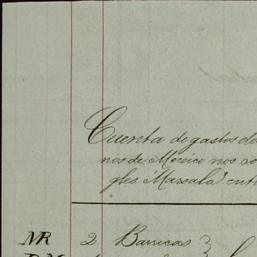 Cuenta de gastos de
nos de Mexico nos co
gles "Marsala" ent
NR 2 Barricas